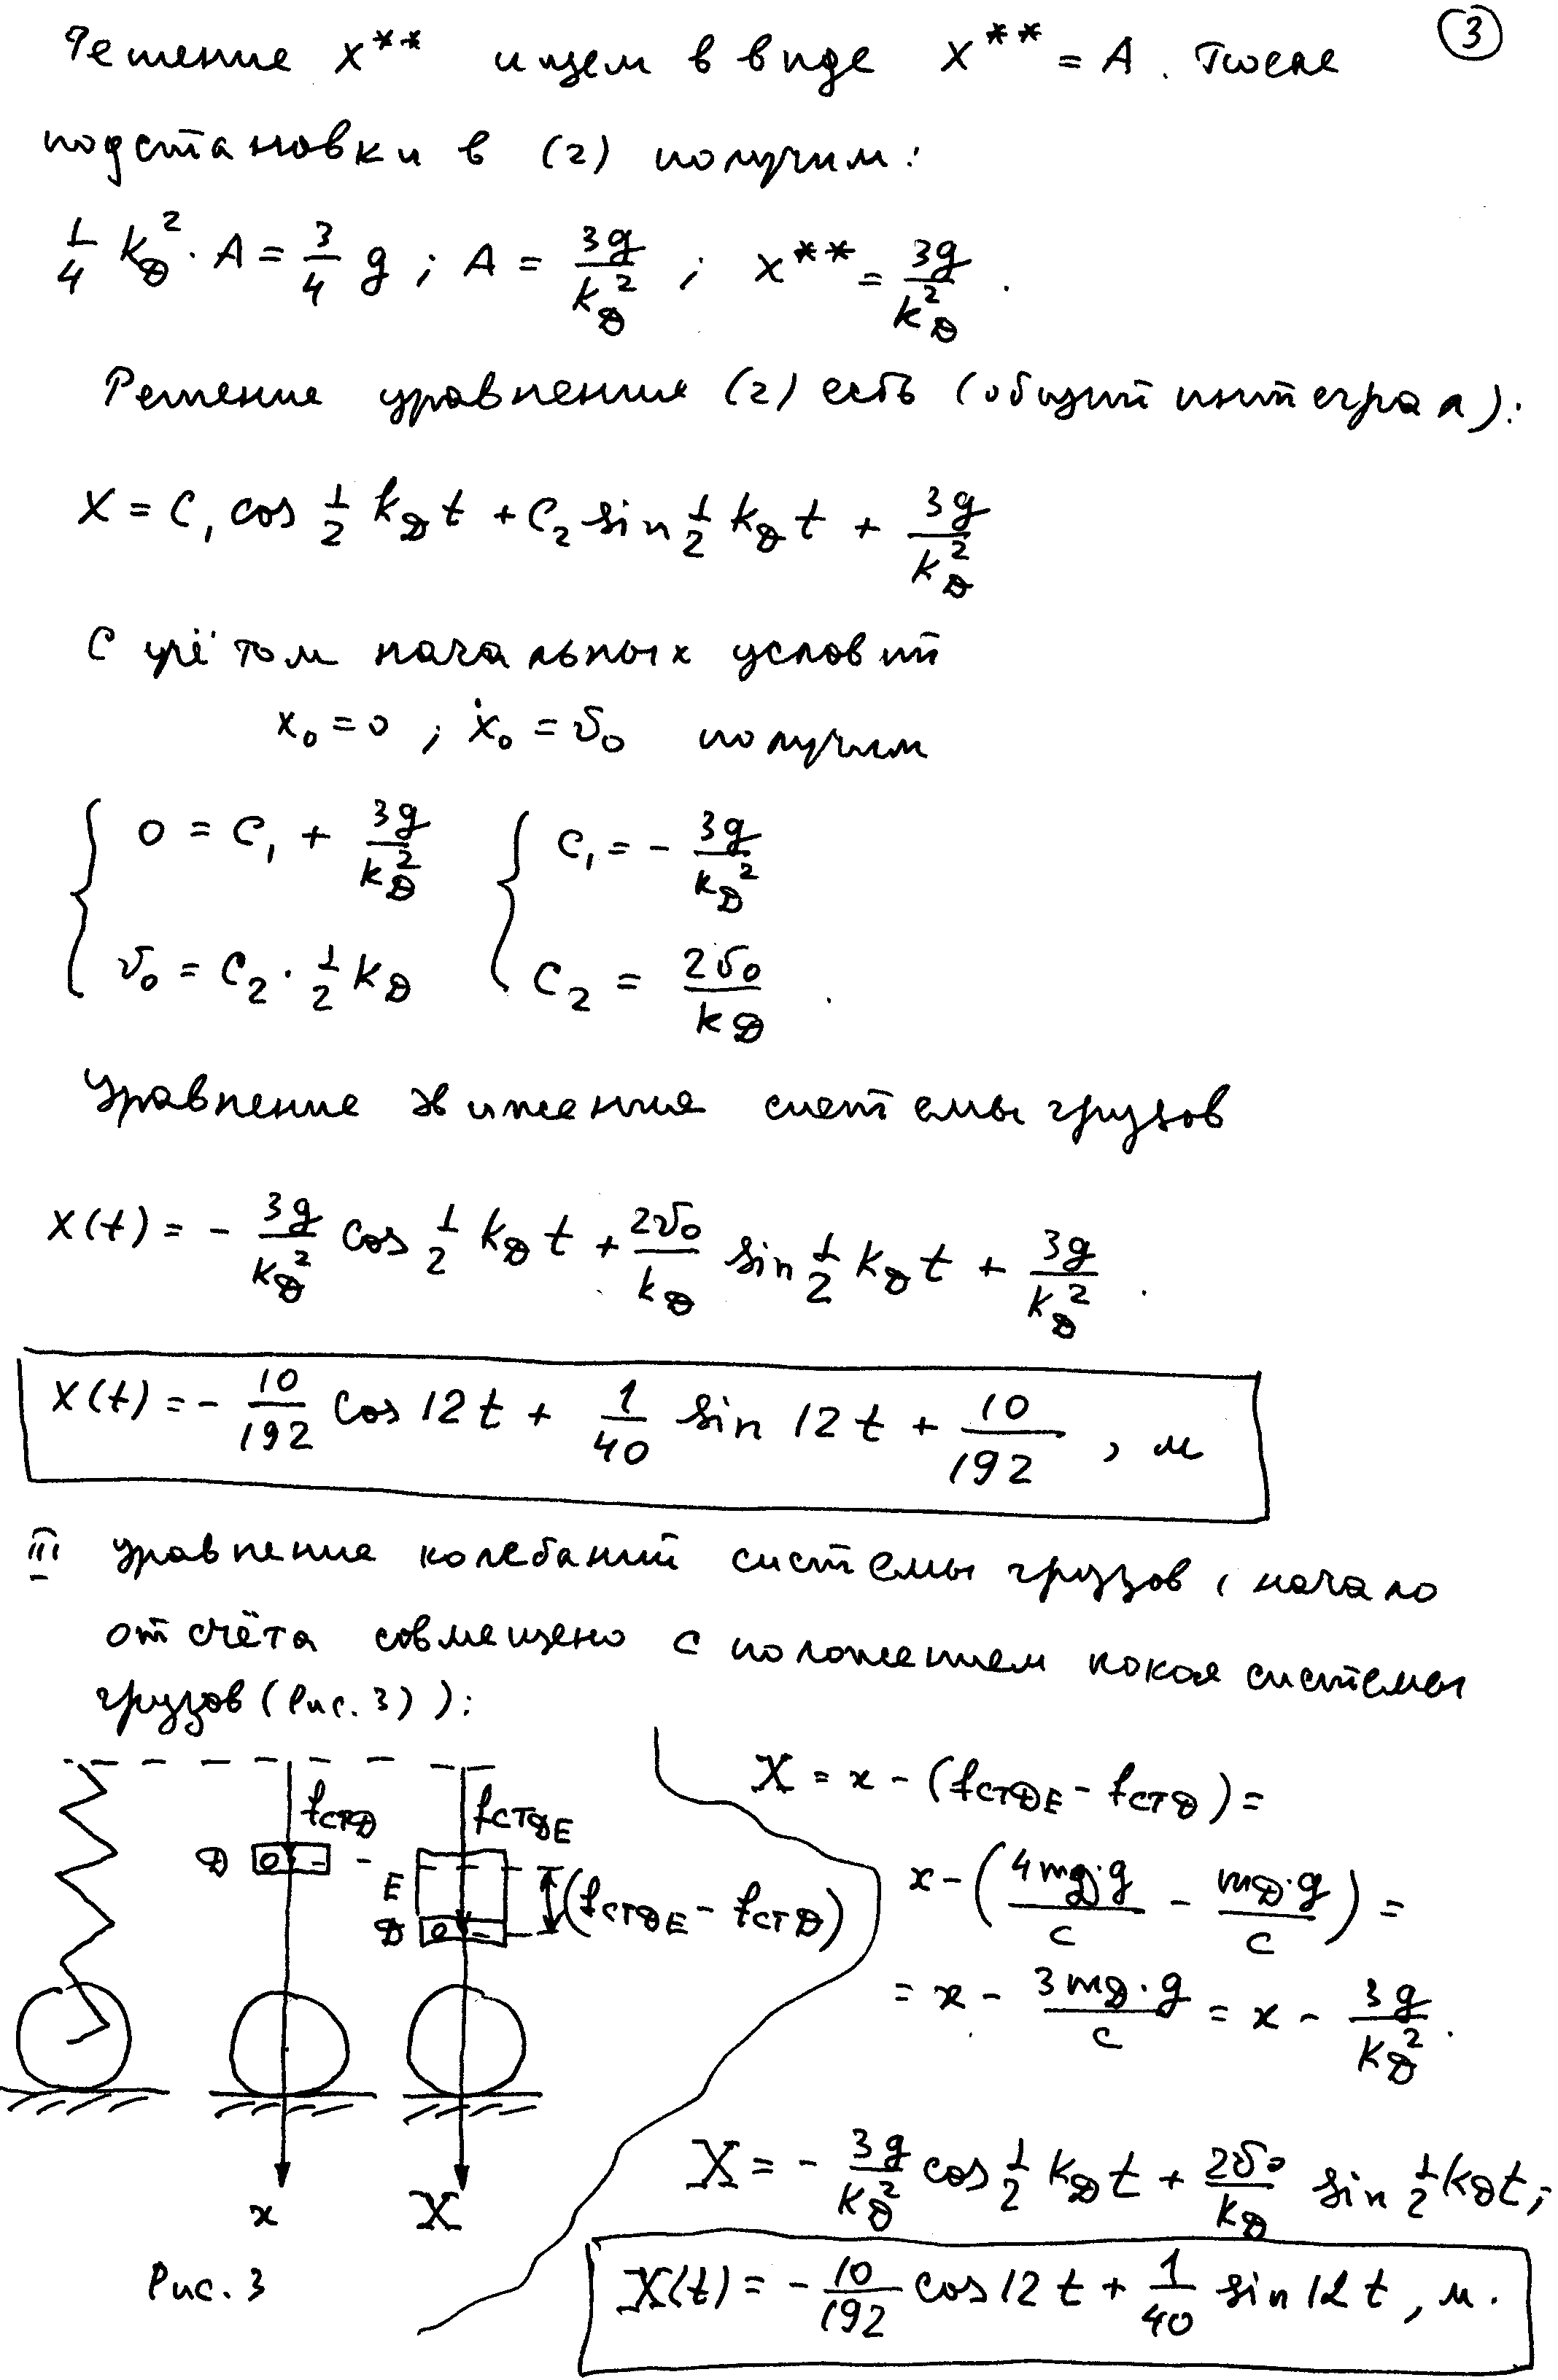 3
Решение x** ищем в виде x** = A. После
подстановки в (2) получим:
1/4 k_D² · A = 3/4 g ; A = 3g/k_D² ; x** = 3g/k_D² .
Решение уравнения (2) есть (общий интеграл):
x = C₁ cos 1/2 k_D t + C₂ sin 1/2 k_D t + 3g/k_D²
С учётом начальных условий
x₀ = 0 ; ẋ₀ = v₀ получим
{ 0 = C₁ + 3g/k_D² { C₁ = - 3g/k_D²
v₀ = C₂ · 1/2 k_D C₂ = 2v₀/k_D .
Уравнение движения системы грузов
x(t) = - 3g/k_D² cos 1/2 k_D t + 2v₀/k_D sin 1/2 k_D t + 3g/k_D² .
x(t) = - 10/192 cos 12t + 1/40 sin 12t + 10/192 , м
III уравнение колебаний системы грузов, начало
отсчёта совмещено с положением покоя системы
грузов (Рис. 3)):
X = x - (f_стDE - f_стD) =
x - (4m_D·g/c - m_D·g/c) =
= x - 3m_D·g/c = x - 3g/k_D² .
X = - 3g/k_D² cos 1/2 k_D t + 2v₀/k_D sin 1/2 k_D t ;
X(t) = - 10/192 cos 12t + 1/40 sin 12t , м.
f_стD
f_стDE
D
O
E
D
O
(f_стDE - f_стD)
x
X
Рис. 3